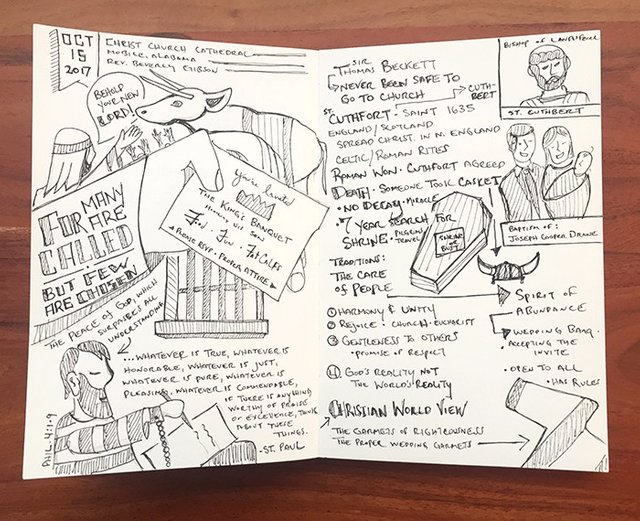 OCT
15
2017
CHRIST CHURCH CATHEDRAL
MOBILE, ALABAMA
REV. BEVERLY GIBSON
BEHOLD
YOUR NEW
LORD!
You're Invited
THE KING'S BANQUET
HIS SON
Food · Fun · Fat Calfs
PLEASE RSVP. PROPER ATTIRE
FOR MANY
ARE
CALLED
BUT FEW
ARE CHOSEN
THE PEACE OF GOD, WHICH
SURPASSES ALL
UNDERSTANDING
... WHATEVER IS TRUE, WHATEVER IS
HONORABLE, WHATEVER IS JUST,
WHATEVER IS PURE, WHATEVER IS
PLEASING, WHATEVER IS COMMENDABLE,
IF THERE IS ANYTHING
WORTHY OF PRAISE
OR EXCELLENCE, THINK
ABOUT THESE
THINGS.
-ST. PAUL
PHIL. 4:1-9
SIR
THOMAS BECKETT
NEVER BEEN SAFE TO
GO TO CHURCH
CUTH-
BERT
ST.
CUTHFORT - SAINT 1635
ENGLAND/SCOTLAND
SPREAD CHRIST. IN N. ENGLAND
CELTIC/ROMAN RITES
ROMAN WON. CUTHFORT AGREED
DEATH. SOMEONE TOOK CASKET
• NO DECAY. MIRACLE
• 7 YEAR SEARCH FOR
SHRINE
PILGRIM
TRAVEL
SHRINE
OR
BUST
TRADITIONS:
THE CARE
OF PEOPLE
① HARMONY & UNITY
② REJOICE! CHURCH. EUCHARIST
③ GENTLENESS TO OTHERS
• PROMISE OF RESPECT
④ GOD'S REALITY NOT
THE WORLD'S REALITY
CHRISTIAN WORLD VIEW
THE GARMETS OF RIGHTEOUSNESS
THE PROPER WEDDING GARMETS
BISHOP OF
ST. CUTHBERT
BAPTISM OF:
JOSEPH COOPER
SPIRIT OF
ABUNDANCE
WEDDING BANQ.
ACCEPTING THE
INVITE
• OPEN TO ALL
• HAS RULES